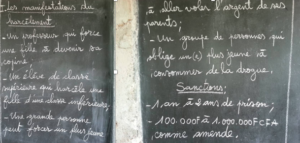 I Les manifestations du
harcèlement
- Un professeur qui force
une fille à devenir sa
copine.
- Un élève de classe
supérieure qui harcèle une
fille d'une classe inférieure.
- Une grande personne
peut forcer un plus jeune
à aller voler l'argent de ses
parents;
- Un groupe de personnes qui
oblige un(e) plus jeune à
consommer de la drogue.
Sanctions:
- 1 an à 2 ans de prison;
- 100.000F à 1.000.000FCFA
comme amende.